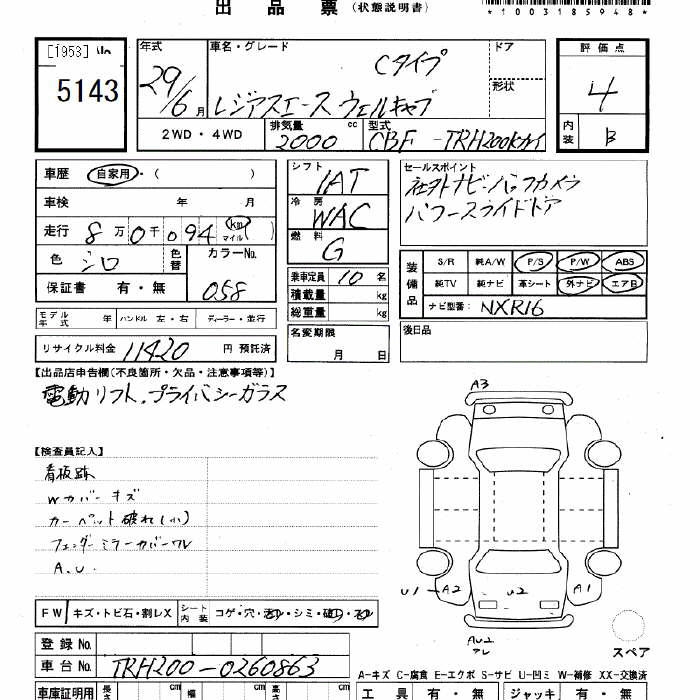 出品票（状態説明書）
*1003185948*
[1953] 5143
年式 29/6月
車名・グレード Cタイプ
レジアスエース ウェルキャブ
ドア
形状
評価点 4
内装 B
2WD・4WD
排気量 2000 cc
型式 CBF-TRH200Kカイ
車歴 自家用・( )
車検 年 月
走行 8万0千094 (km マイル)
色 シロ 色替
カラーNo. 058
保証書 有・無
シフト IAT
冷房 WAC
燃料 G
乗車定員 10名
積載量 kg
総重量 kg
セールスポイント
社外ナビ・バックカメラ
パワースライドドア
装備品 S/R 純A/W P/S P/W ABS
純TV 純ナビ 革シート 外ナビ エアB
ナビ型番: NXR16
モデル年式 年 ハンドル 左・右 ディーラー・並行
名変期限 月 日
後日品
リサイクル料金 11420 円 預託済
【出品店申告欄(不良箇所・欠品・注意事項等)】
電動リフト.プライバシーガラス
【検査員記入】
看板跡
Wカバーキズ
カーペット破れ(小)
フェンダーミラーカバーワレ
A.U.
A3
U1 A2 U2 A1
スペア
FW キズ・トビ石・割レX シート内装 コゲ・穴・
・シミ・
登録No.
車台No. TRH200-0260863
A-キズ C-腐食 E-エクボ S-サビ U-凹ミ W-補修 XX-交換済
車庫証明用 長さ cm 幅 cm 高さ cm
工具 有・無 ジャッキ 有・無